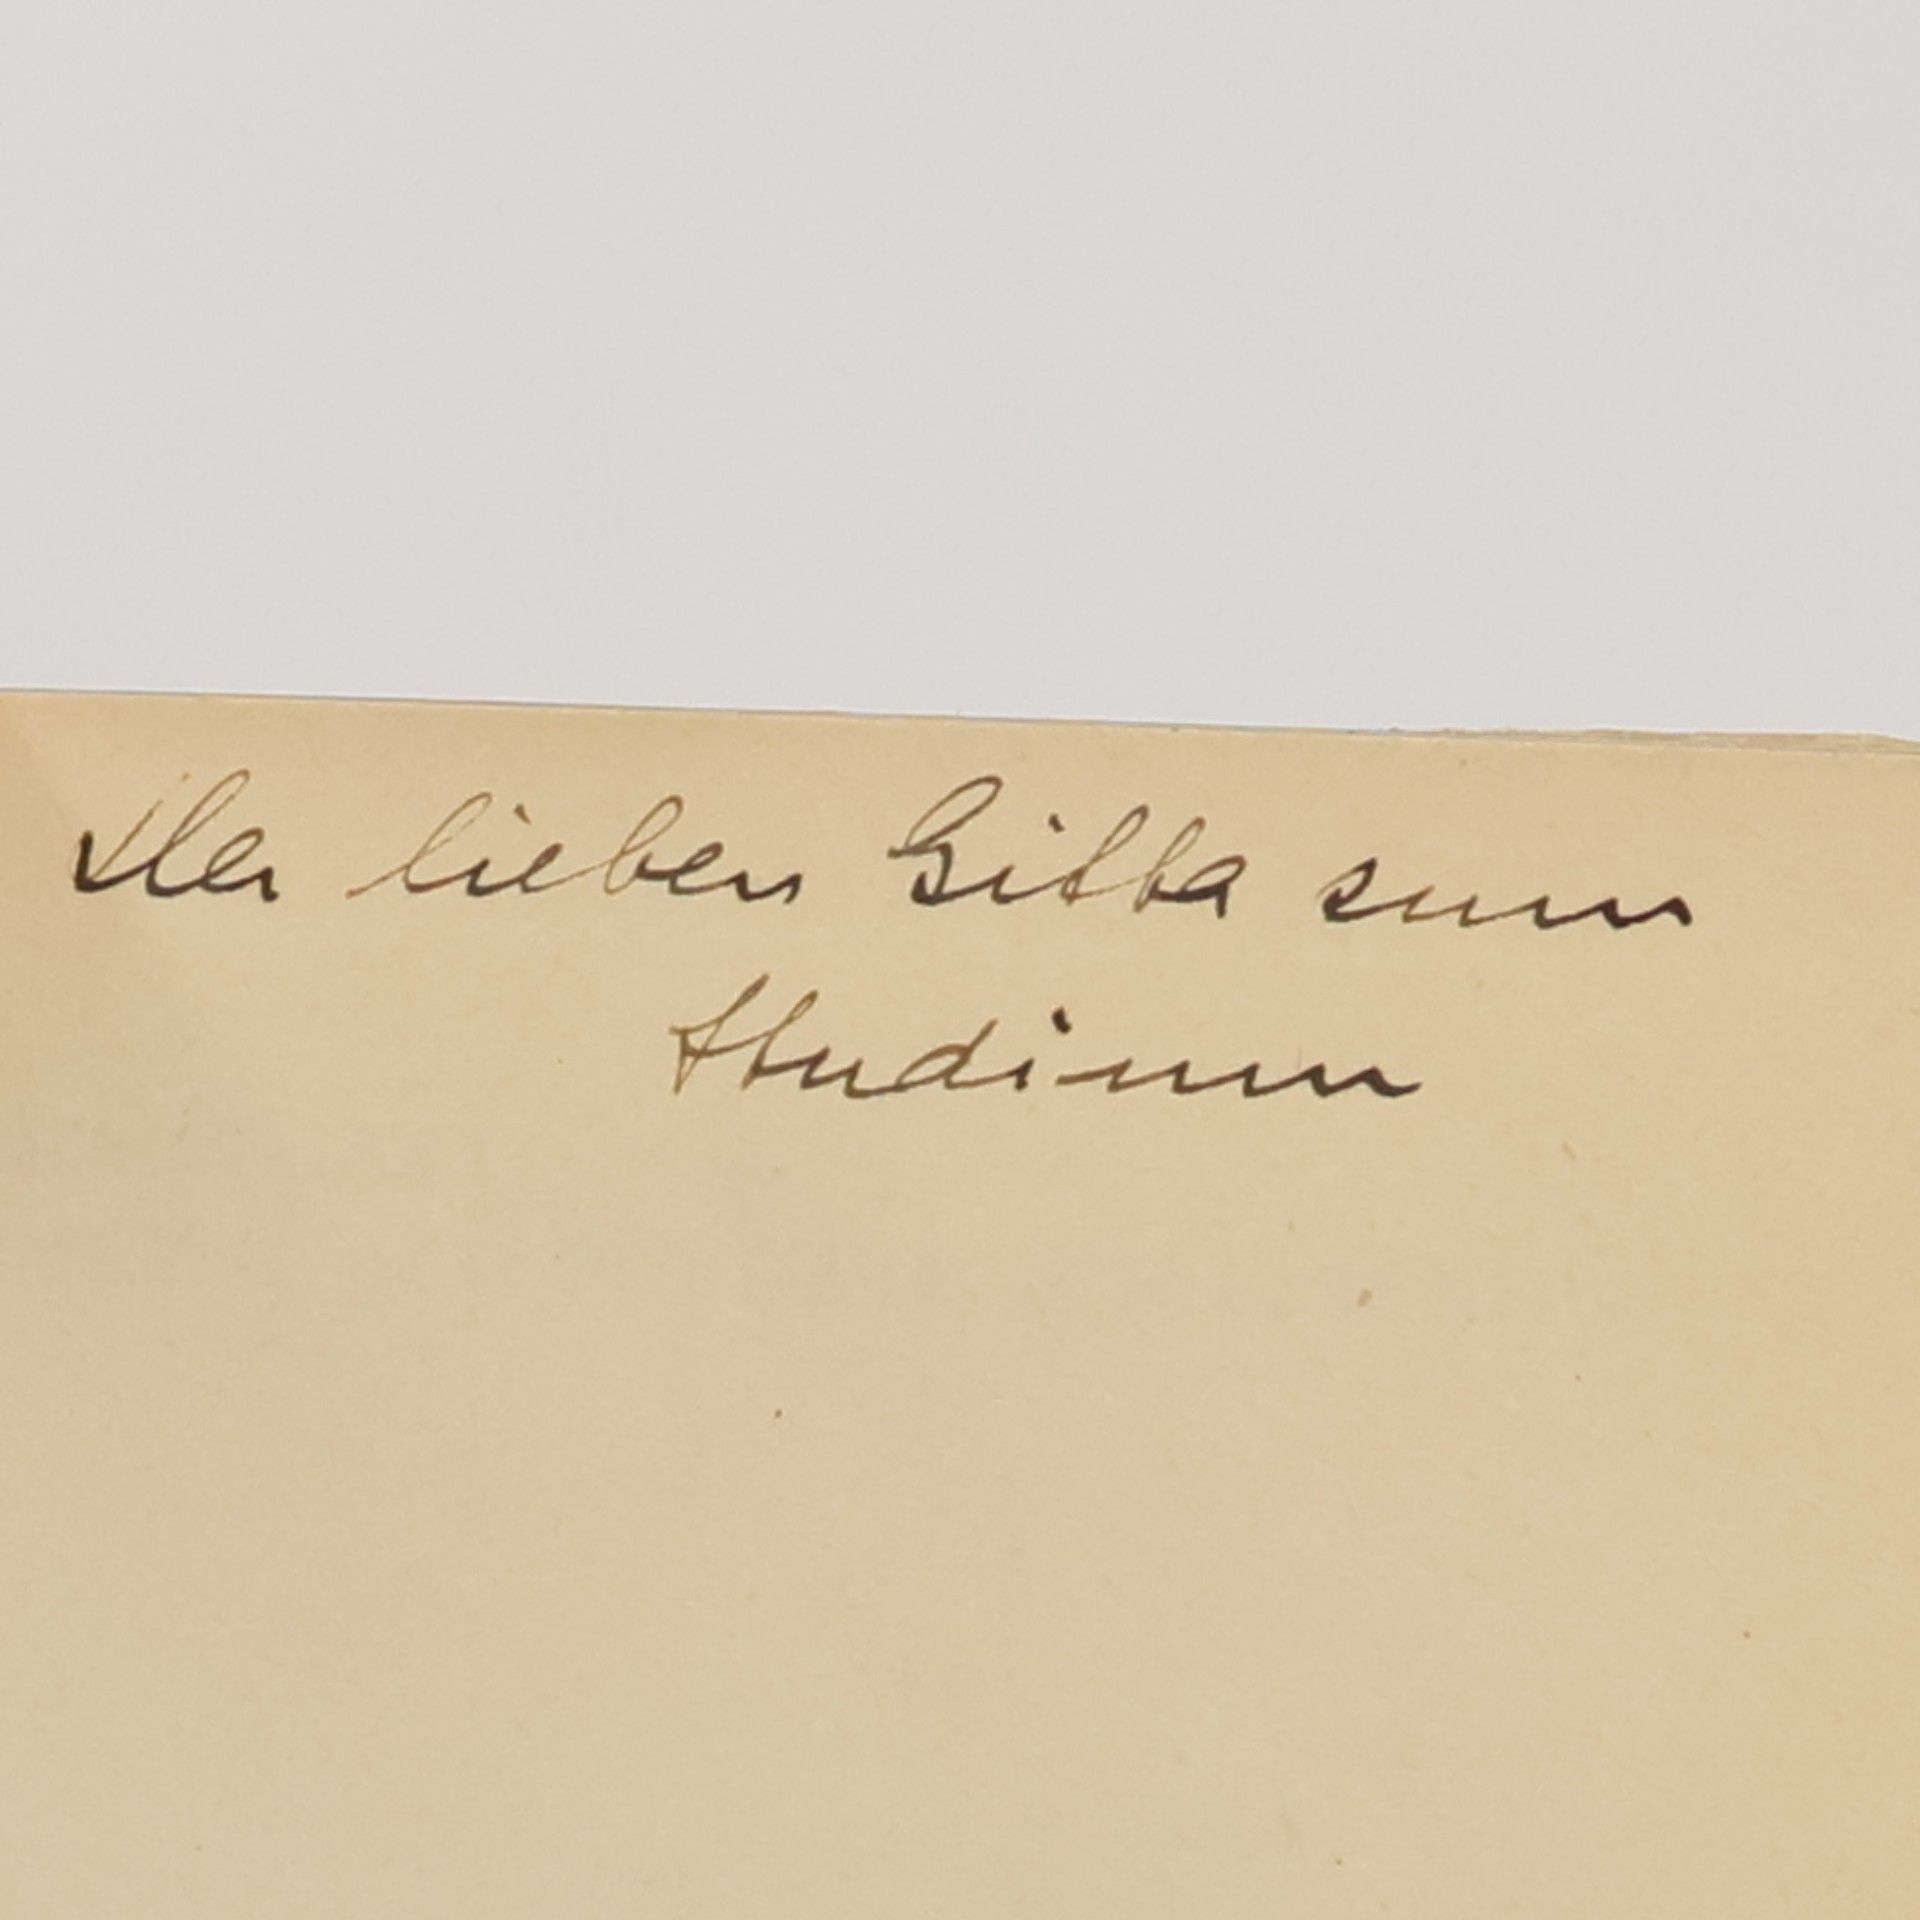 Der lieben Gitta zum
Studium